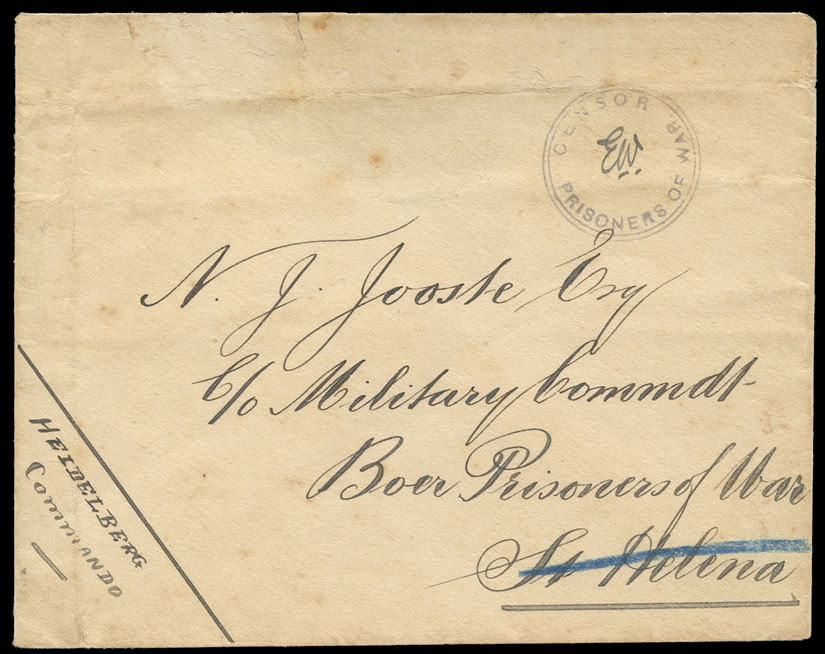 CENSOR
EW.
PRISONERS OF WAR
N. J. Jooste Esq
C/o Military Commdt-
Boer Prisoners of War
St Helena
HEIDELBERG
COMMANDO